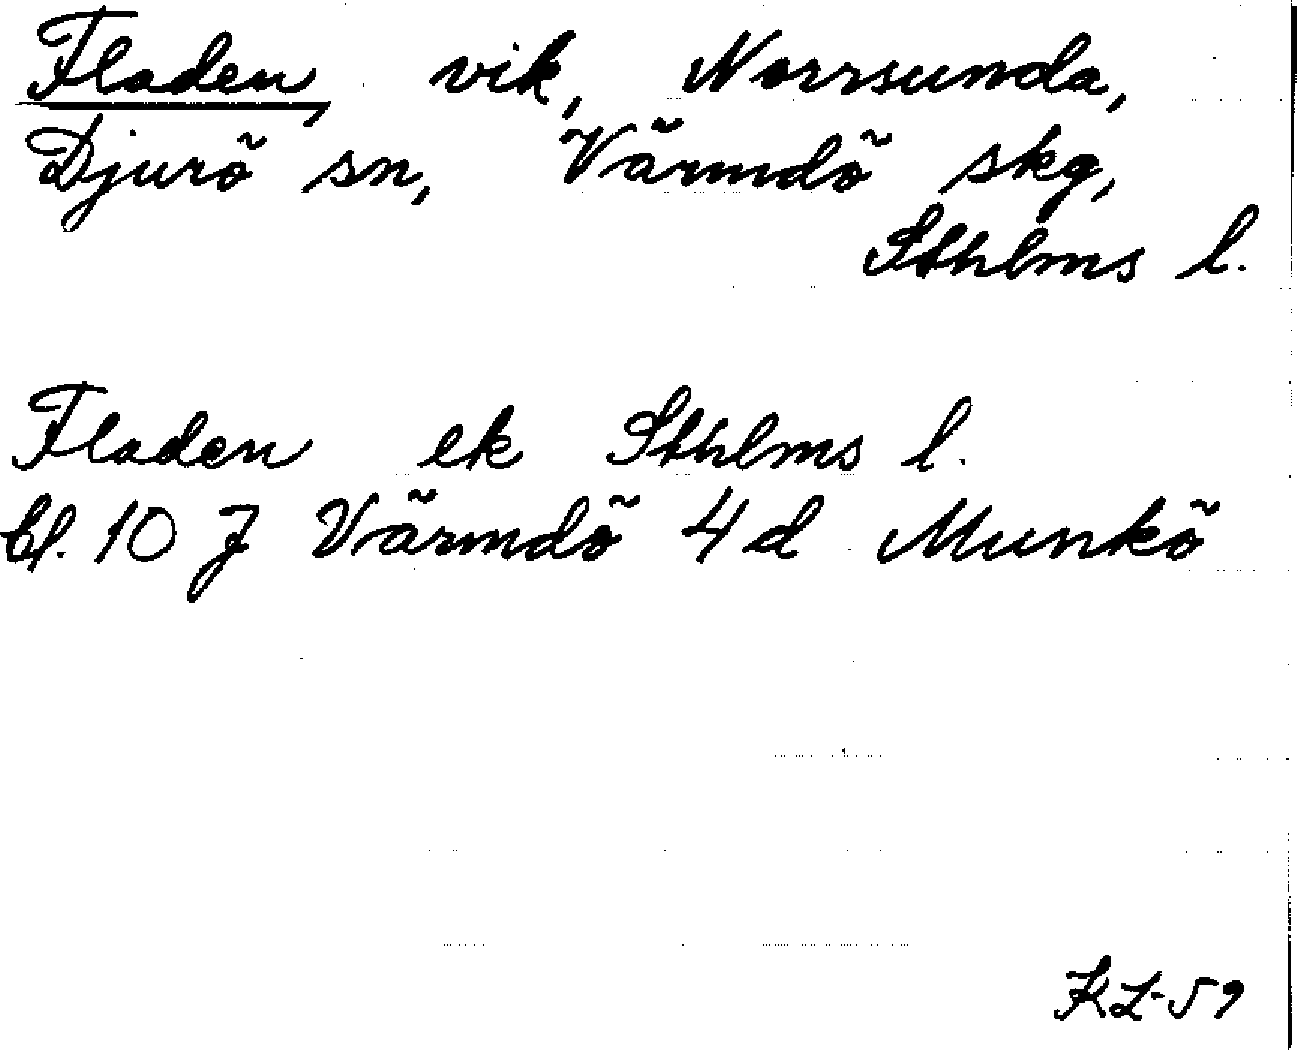 Fladen, vik, Norrsunda,
Djurö sn, Värmdö skg,
Sthlms l.
Fladen ek Sthlms l.
bl. 10 J Värmdö 4 d Munkö
KL-59